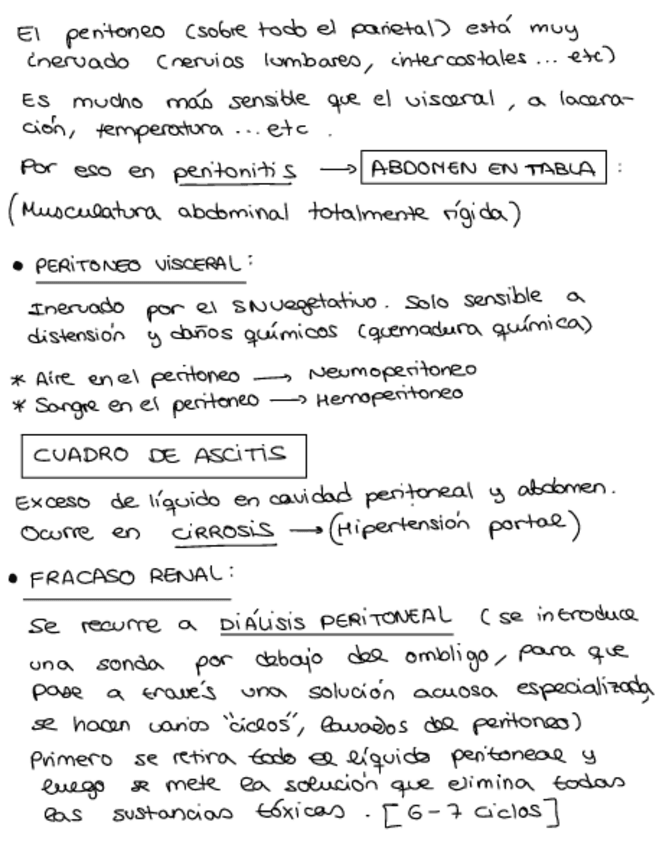 El peritoneo (sobre todo el parietal) está muy
inervado (nervios lumbares, intercostales ... etc)
Es mucho más sensible que el visceral, a lacera-
ción, temperatura ... etc.
Por eso en peritonitis → ABDOMEN EN TABLA :
(Musculatura abdominal totalmente rígida)
• PERITONEO VISCERAL:
Inervado por el SNvegetativo. Solo sensible a
distensión y daños químicos (quemadura química)
* Aire en el peritoneo → Neumoperitoneo
* Sangre en el peritoneo → Hemoperitoneo
CUADRO DE ASCITIS
Exceso de líquido en cavidad peritoneal y abdomen.
Ocurre en CIRROSIS → (Hipertensión portal)
• FRACASO RENAL:
Se recurre a DIÁLISIS PERITONEAL (se introduce
una sonda por debajo del ombligo, para que
pase a través una solución acuosa especializada,
se hacen varios "ciclos", lavados del peritoneo)
Primero se retira todo el líquido peritoneal y
luego se mete la solución que elimina todas
las sustancias tóxicas. [6-7 ciclos]